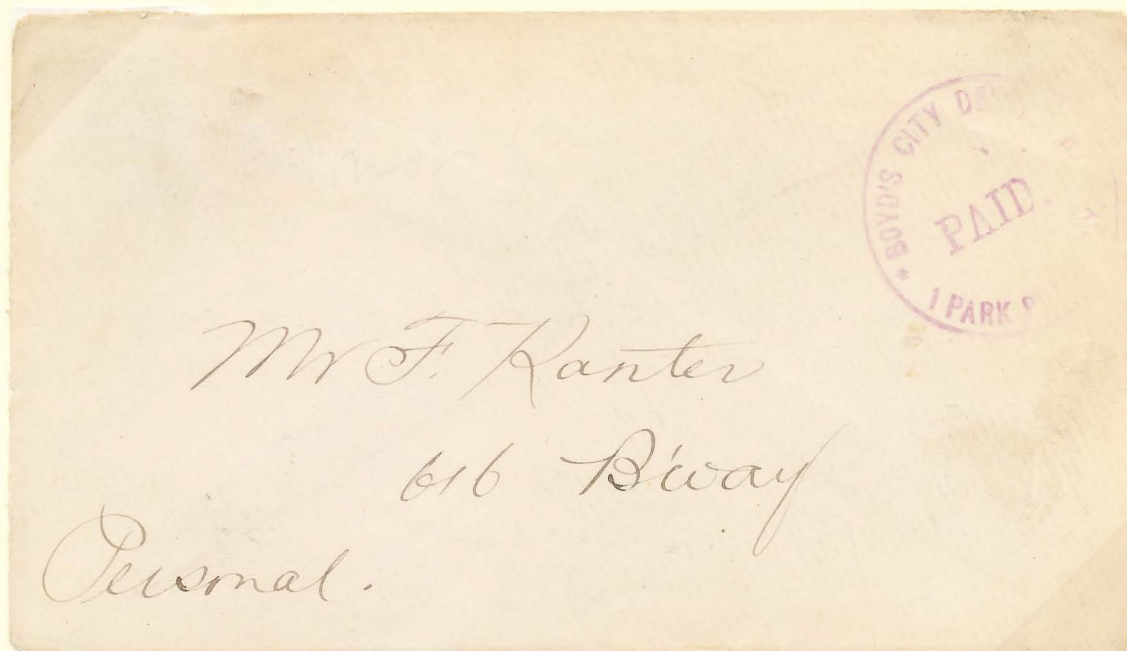 BOYD'S CITY
PAID
1 PARK
Mr F. Kanter
616 B'way
Personal.